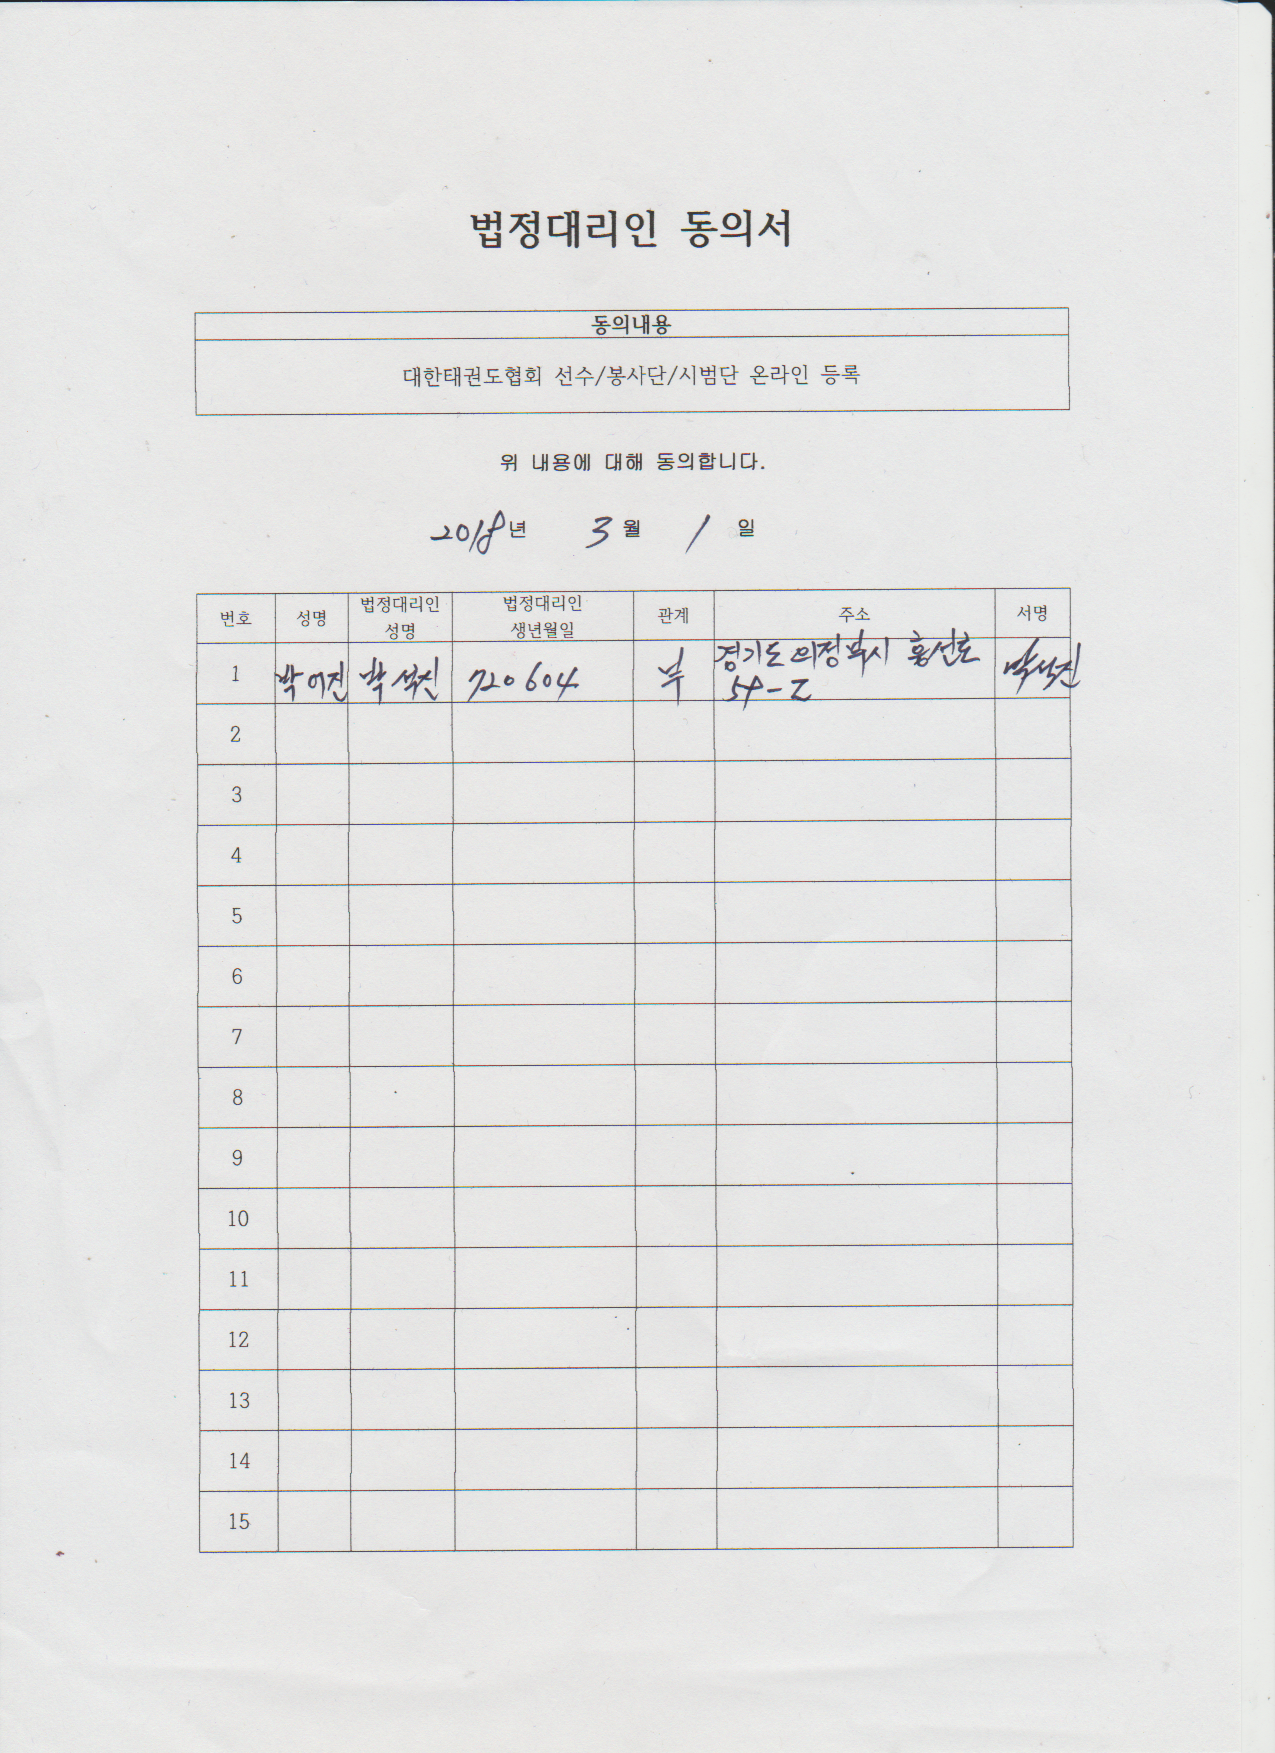 법정대리인 동의서
동의내용
대한태권도협회 선수/봉사단/시범단 온라인 등록
위 내용에 대해 동의합니다.
2018년 3월 1일
번호 성명 법정대리인 성명 법정대리인 생년월일 관계 주소 서명
1 박어진 박석진 720604 부 경기도 의정부시 흥선로 박석진
2
3
4
5
6
7
8
9
10
11
12
13
14
15